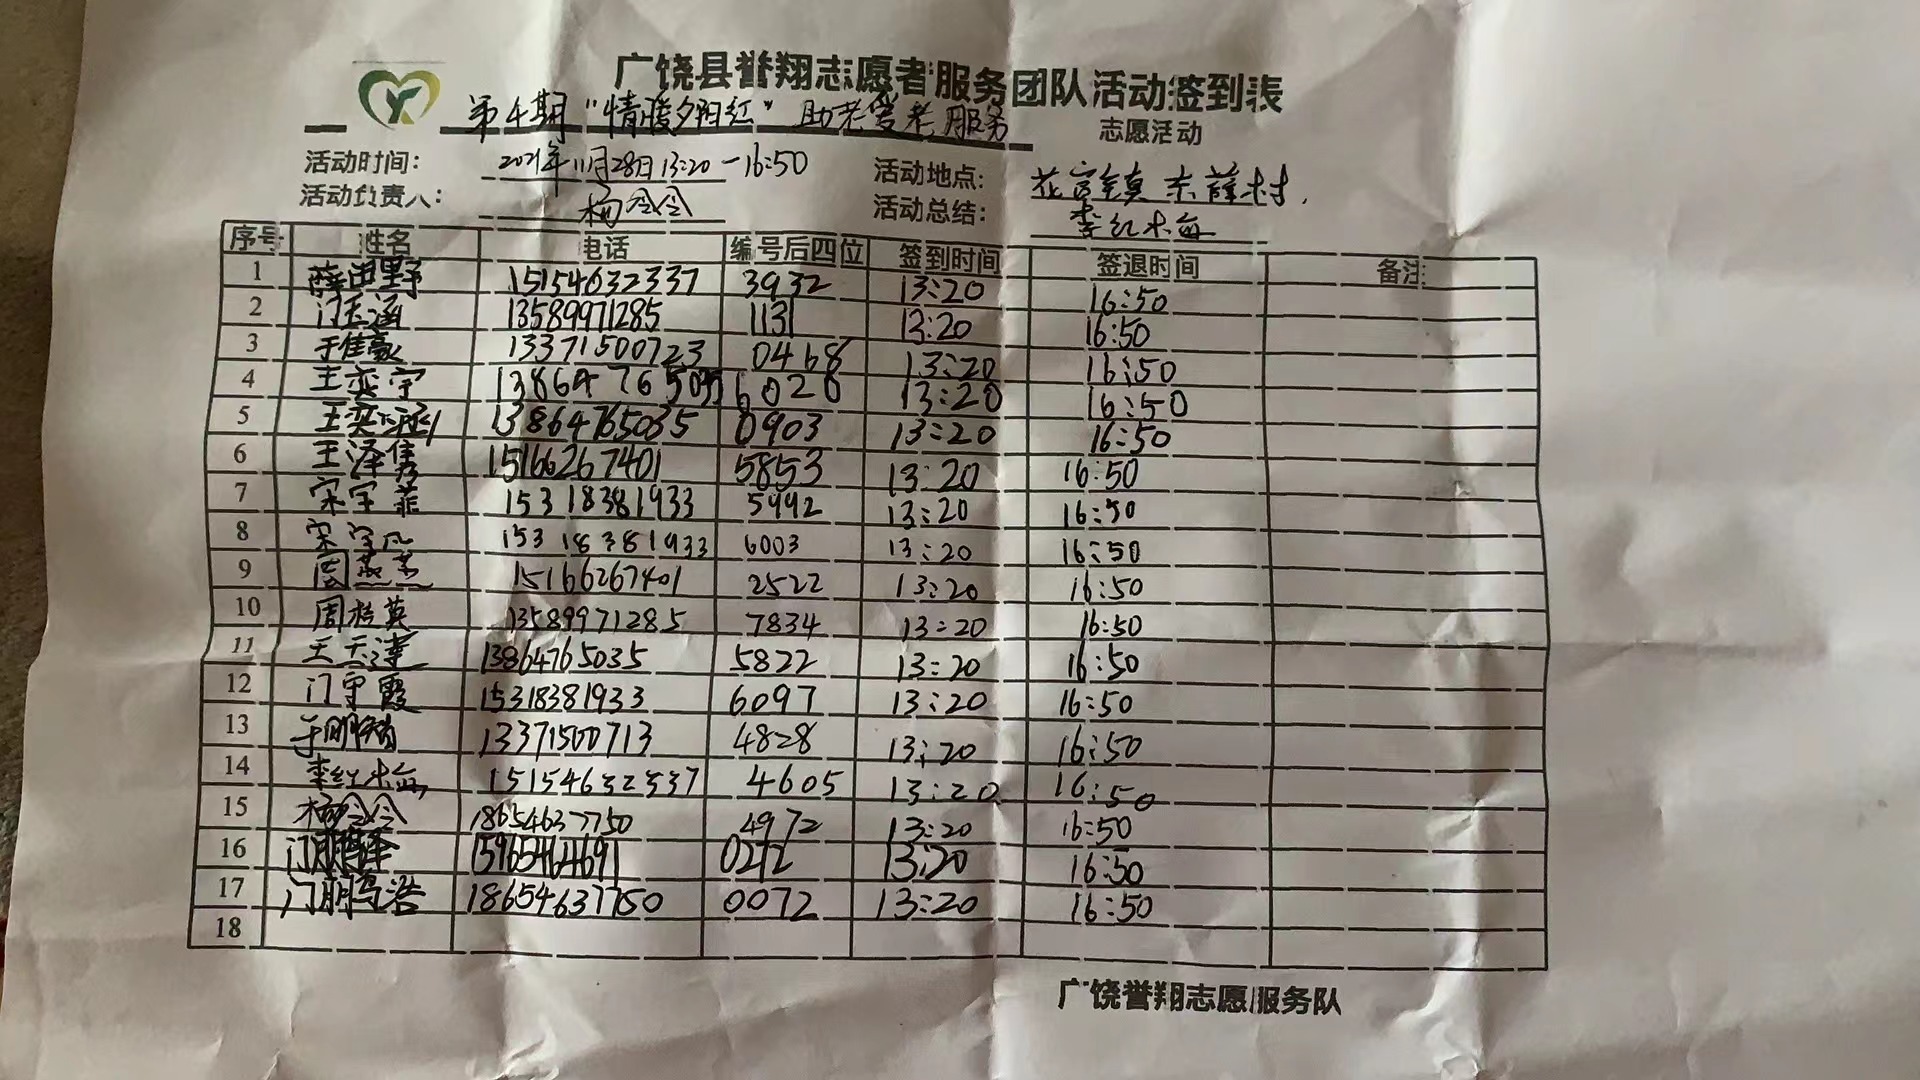 广饶县誉翔志愿者服务团队活动签到表
第4期 "情暖夕阳红" 助老爱老服务 志愿活动
活动时间： 2021年11月28日13:20-16:50 活动地点： 花官镇东薛村.
活动负责人： 杨令令 活动总结： 李红梅
序号 姓名 电话 编号后四位 签到时间 签退时间 备注
1 薛田野 15154632337 3932 13:20 16:50
2 门玉涵 13589971285 1131 13:20 16:50
3 于佳豪 13371500723 0468 13:20 16:50
4 王奕宇 13864765035 6020 13:20 16:50
5 王奕涵 13864765035 0903 13:20 16:50
6 王泽隽 15166267401 5853 13:20 16:50
7 宋宇菲 15318381933 5992 13:20 16:50
8 宋宇凡 15318381933 6003 13:20 16:50
9 周 15166267401 2522 13:20 16:50
10 周桂英 13589971285 7834 13:20 16:50
11 王天 13864765035 5822 13:20 16:50
12 门守霞 15318381933 6097 13:20 16:50
13 于鹏 13371500713 4828 13:20 16:50
14 李红梅 15154632337 4605 13:20 16:50
15 杨令令 18654637750 4972 13:20 16:50
16 门鹏泽 15965464691 0212 13:20 16:50
17 门鹏浩 18654637750 0072 13:20 16:50
18
广饶誉翔志愿服务队